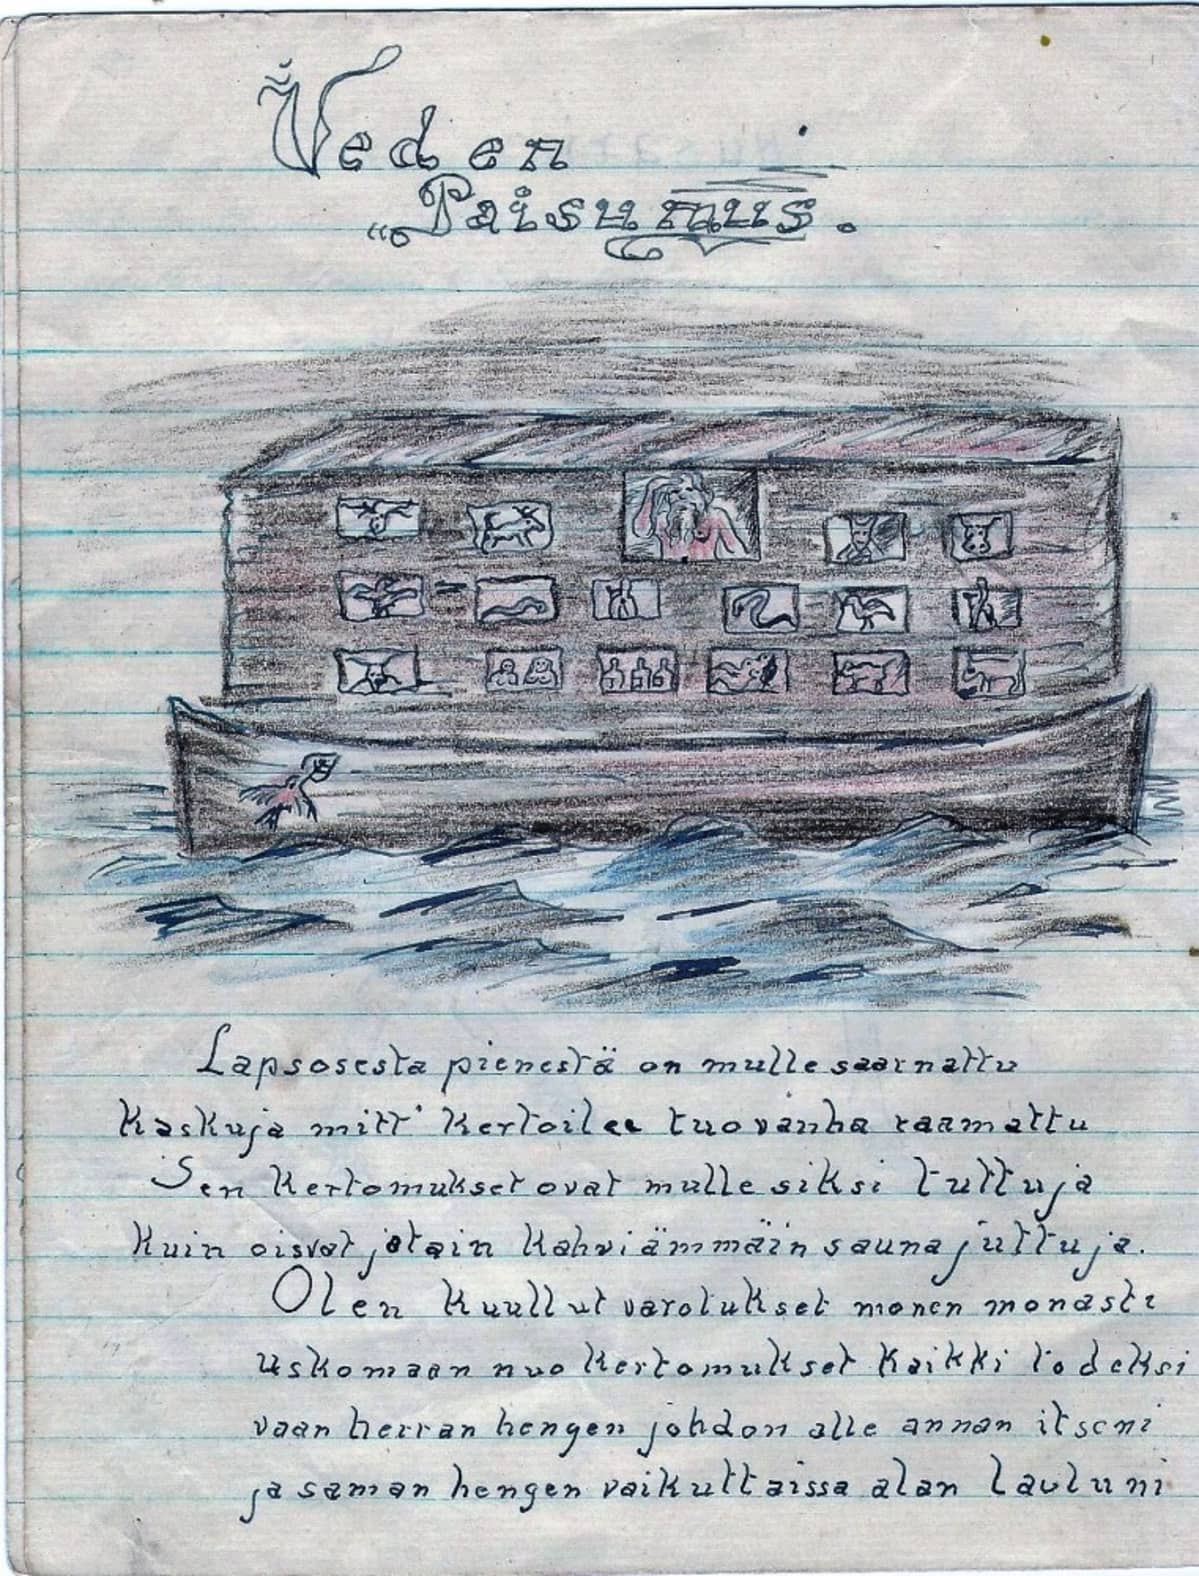 Veden
"Paisumus.
Lapsosesta pienestä on mulle saarnattu
Kaskuja mitt' Kertoilee tuo vanha raamattu
Sen Kertomukset ovat mulle siksi tuttuja
Kuin oisvat jotain Kahviämmäin saunajuttuja.
Olen Kuullut varotukset monen monasti
uskomaan nuo Kertomukset Kaikki todeksi
vaan herran hengen johdon alle annan itseni
ja saman hengen vaikuttaissa alan lauluni